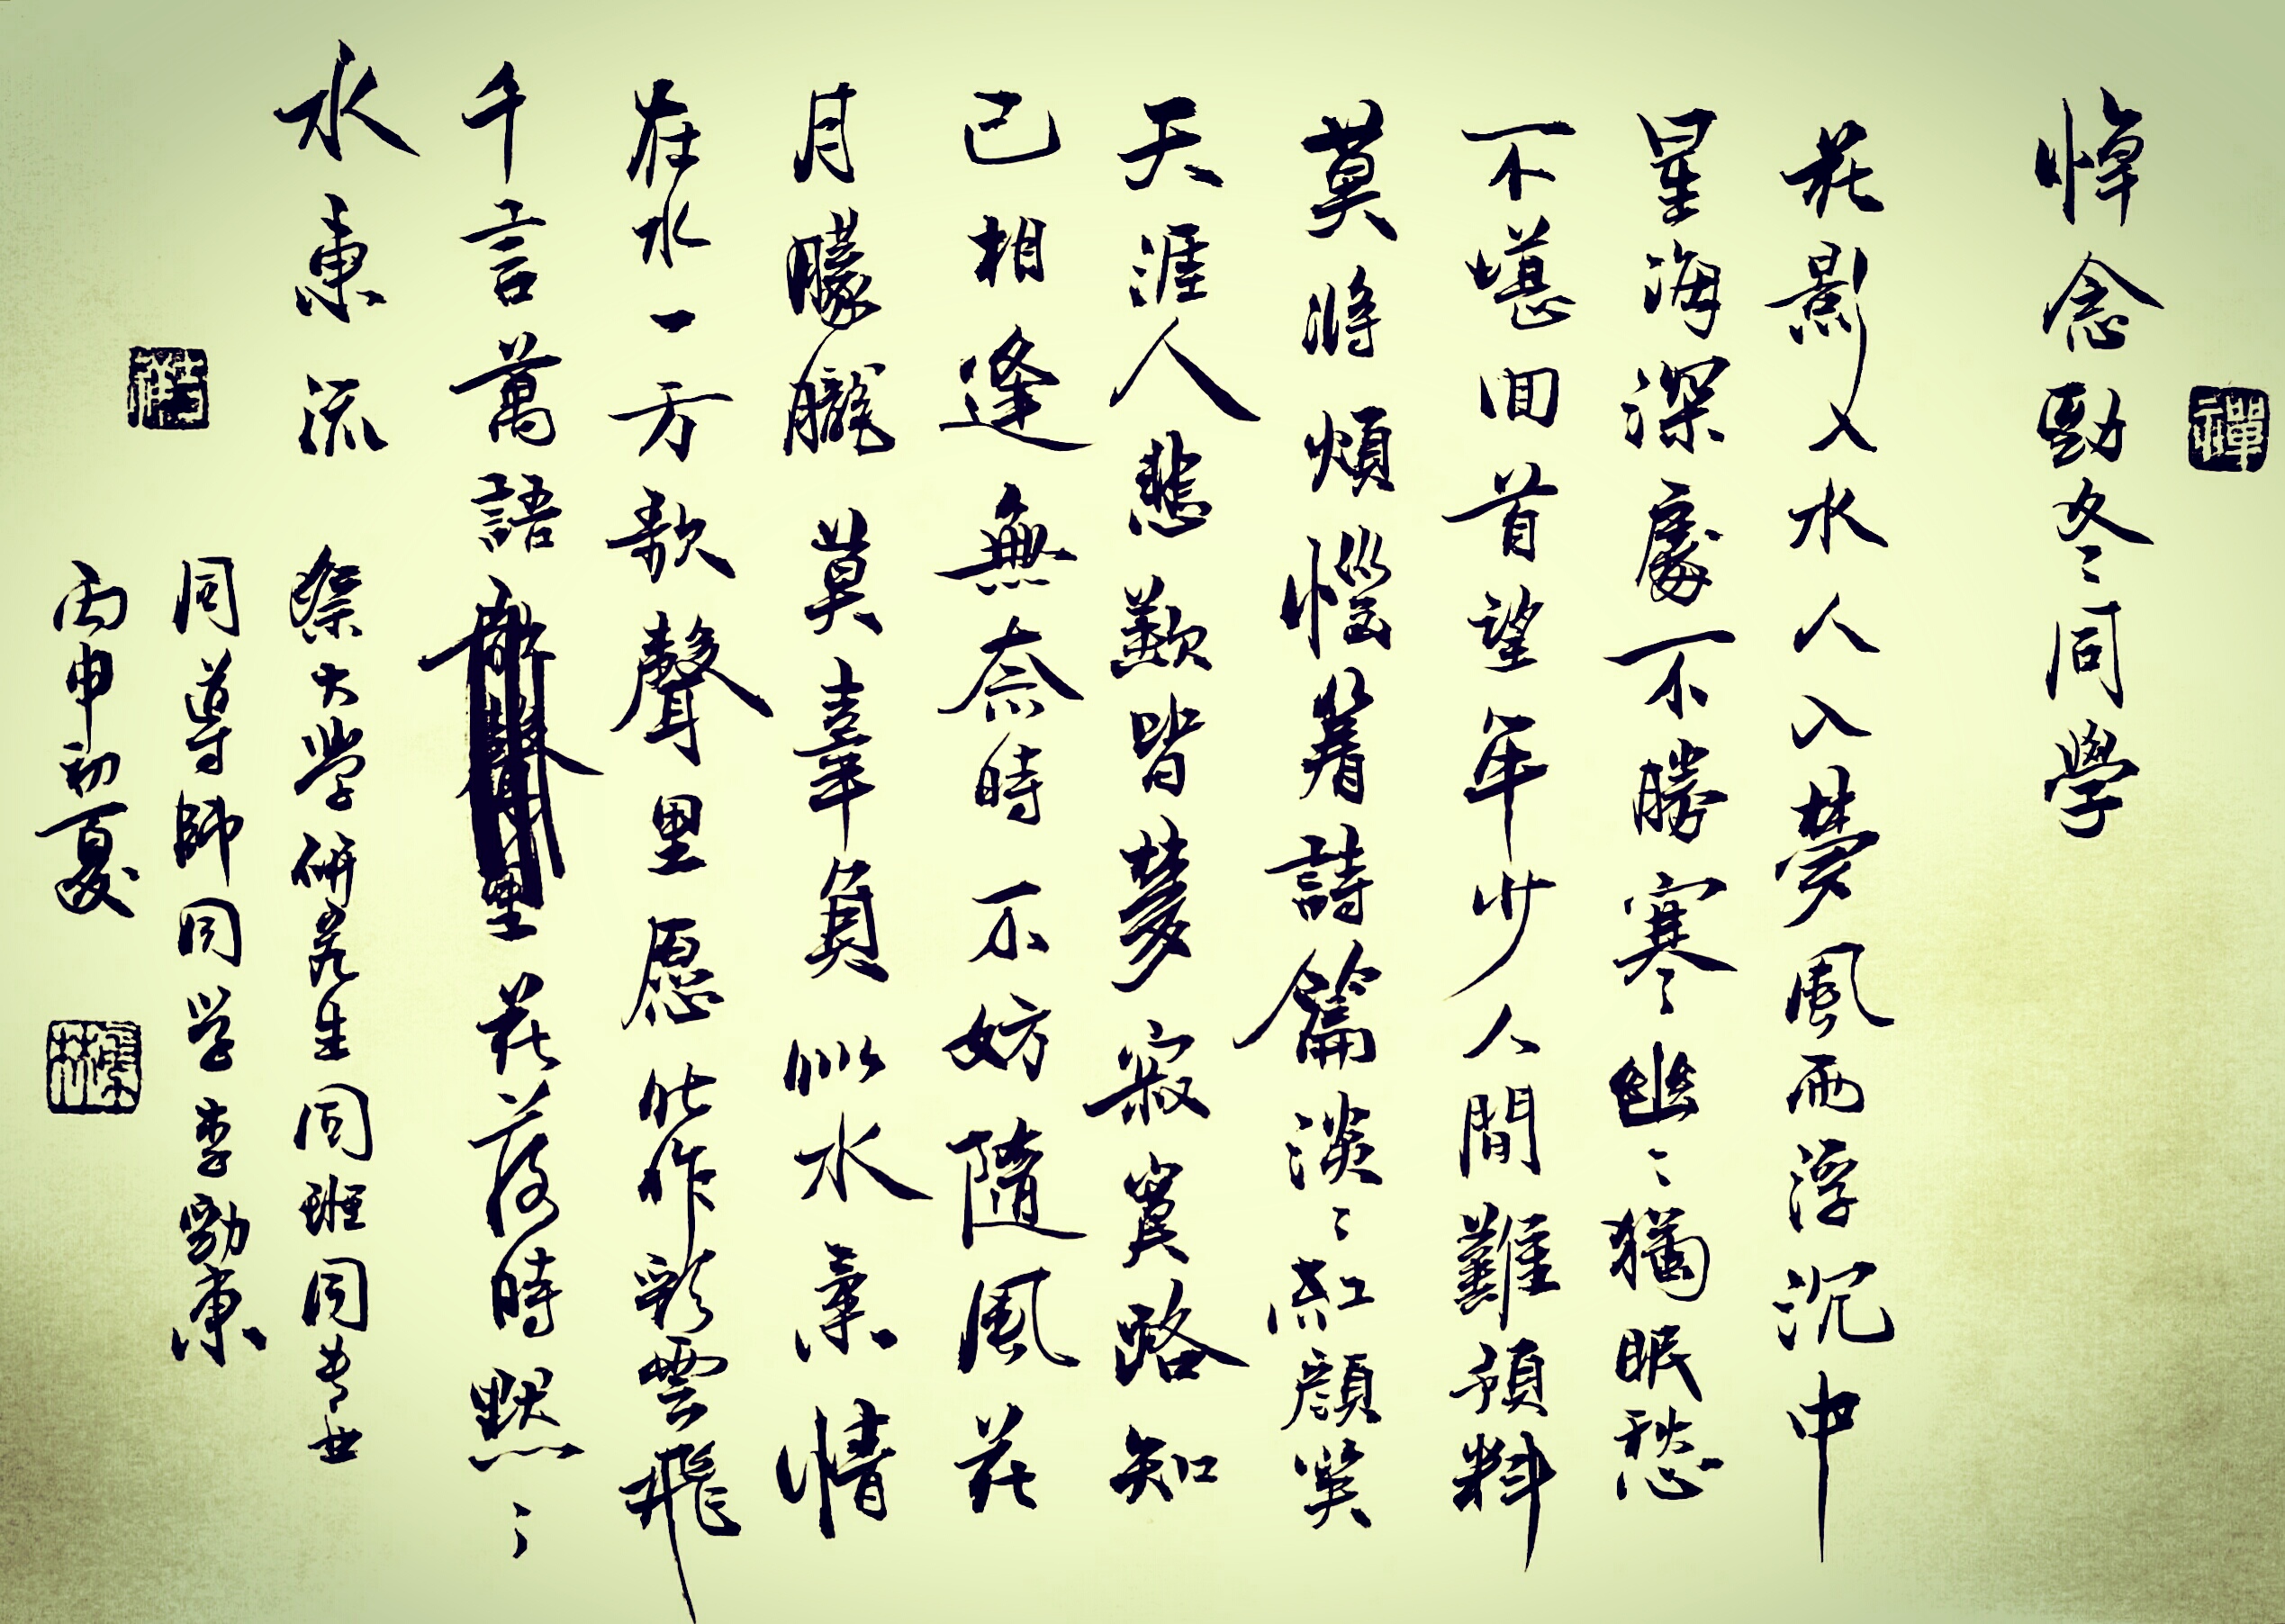 禪
悼念勁冬同學
花影入水人入夢風雨浮沉中
星海深處不勝寒幽〻猶眠愁
不堪回首望年少人間難預料
莫將煩惱著詩篇淡〻紅顏笑
天涯人悲歎皆夢寂寞路知
已相逢無奈時不妨隨風花
月朦朧莫辜負似水柔情
在水一方歌聲里愿能作彩雲飛
千言萬語里花落時默〻
水東流
祭大學研究生同班同专业
同導師同学李勁東
丙申初夏